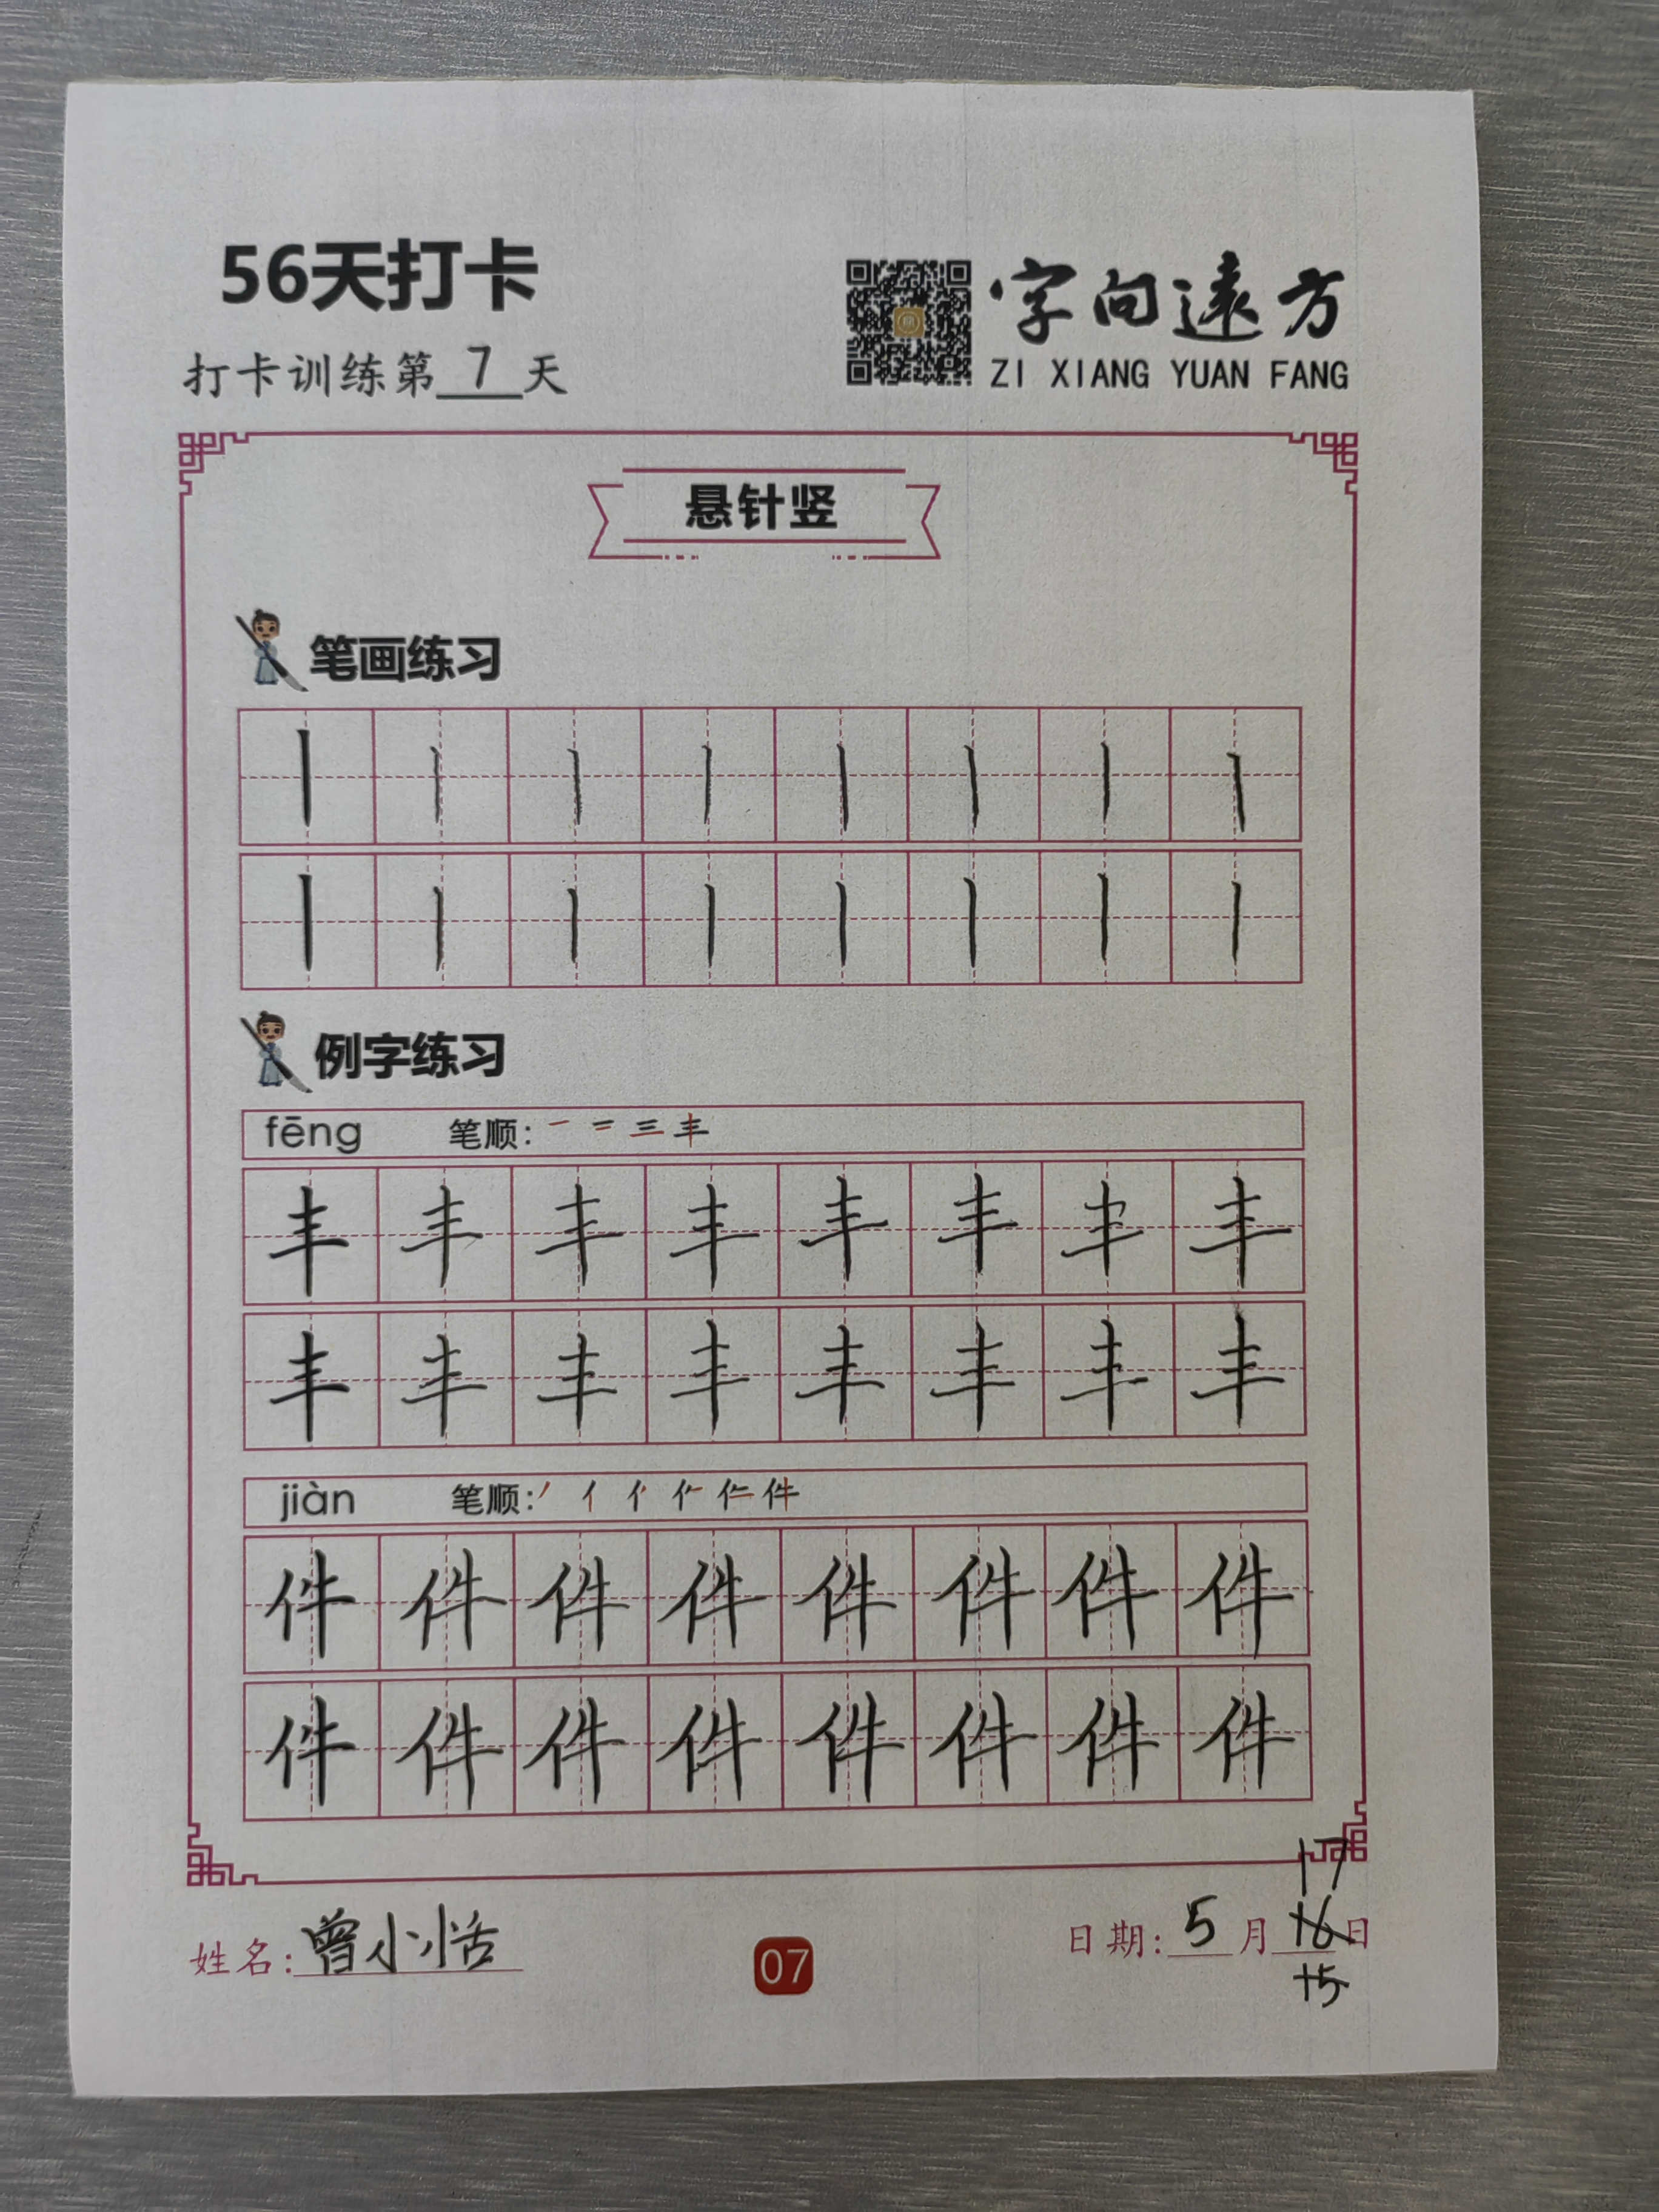 56天打卡
字向遠方
打卡训练第7天
ZI XIANG YUAN FANG
悬针竖
笔画练习
丨丨丨丨丨丨丨丨
丨丨丨丨丨丨丨丨
例字练习
fēng 笔顺: 一 二 三 丰
丰丰丰丰丰丰丰丰
丰丰丰丰丰丰丰丰
jiàn 笔顺: 丿 亻 件
件件件件件件件件
件件件件件件件件
17
姓名: 曾小恬 07 日期: 5月16日
15